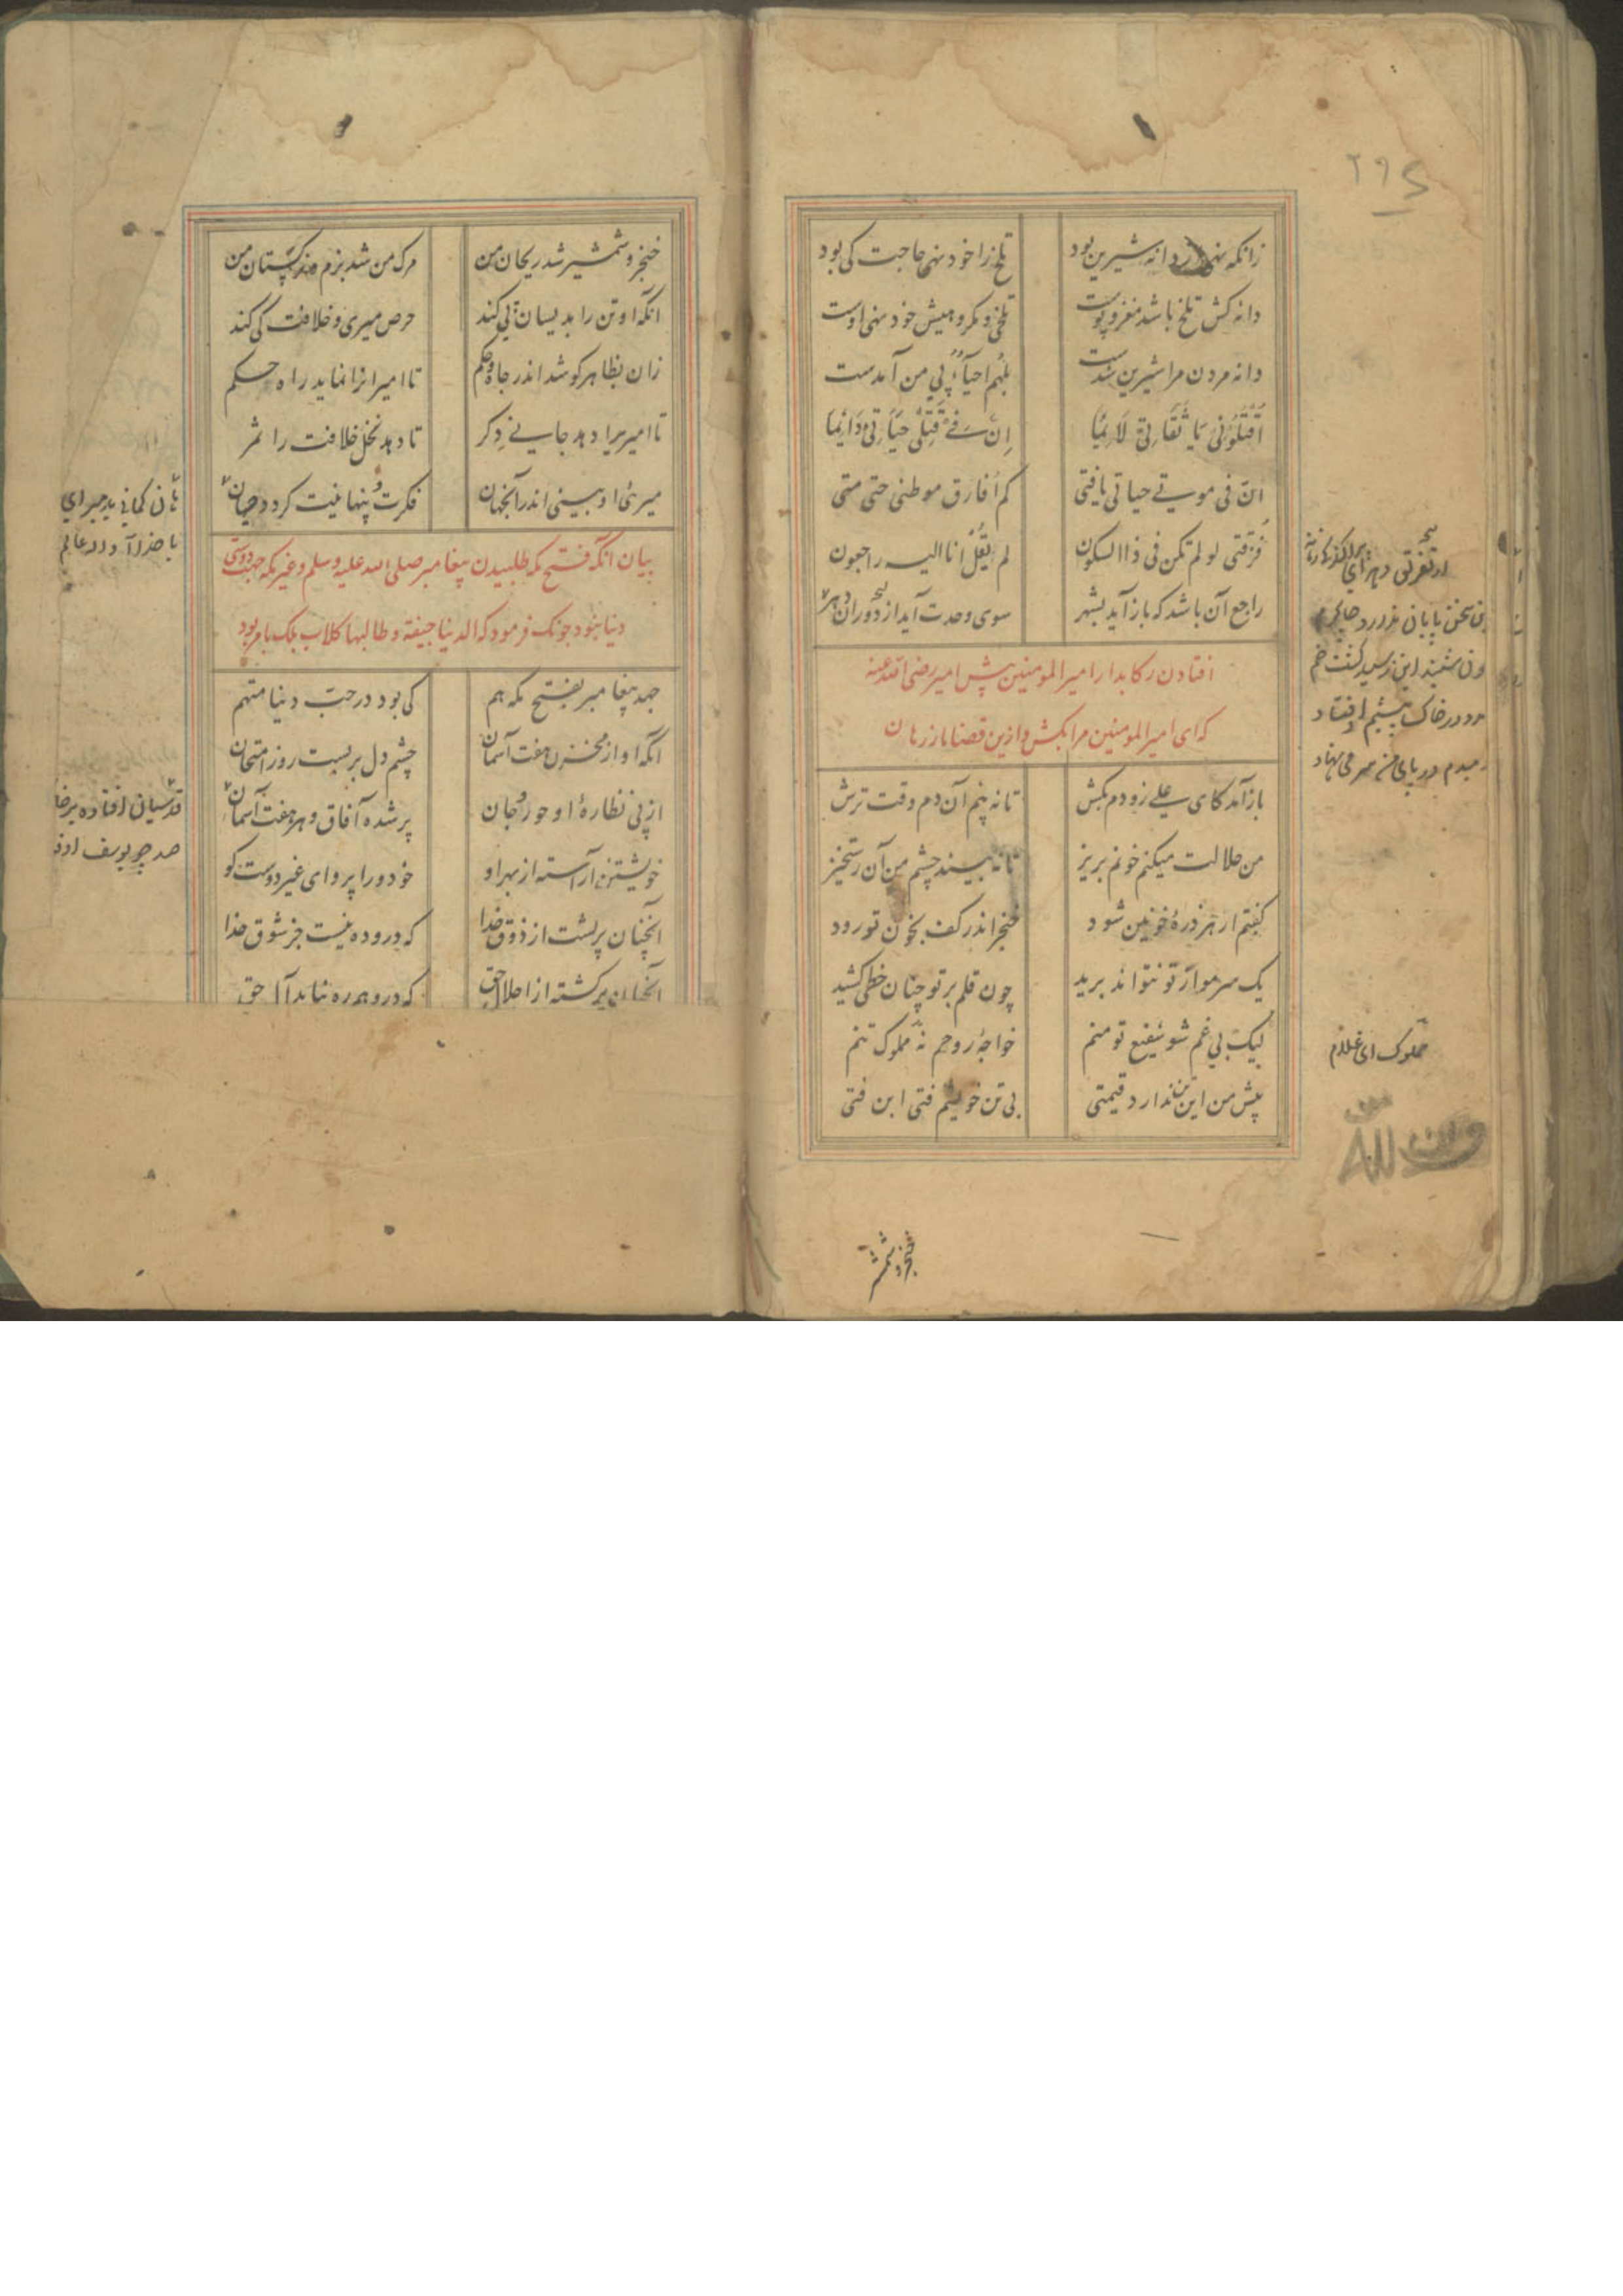 ۲۹۵
زانکه نهی از دانه شیرین بود تلخ را خود نهی حاجت کی بود
دانه کش تلخ باشد مغز و پوست تلخی و مکروهیش خود نهی اوست
دانه مردن مرا شیرین شدست بلهم احیاءٌ پی من آمدست
اُقتُلُونی یا ثقاتی لائما اِنّ فی قتلی حیاتی دائما
انّ فی موتی حیاتی یا فتی کم اُفارق موطنی حتی متی
فُرقتی لو لم تکن فی ذا السکون لم یقُل انا الیه راجعون
راجع آن باشد که باز آید بشهر سوی وحدت آید از دوران دهر
افتادن رکابدار امیر المومنین پیش امیر رضی الله عنه
که ای امیر المومنین مرا بکش و ازین قضا باز رهان
باز آمد کای علی زودم بکش تا نه بینم آن دم و وقت ترش
من حلالت میکنم خونم بریز تا نه بیند چشم من آن رستخیز
گفتم ار هر ذرهٔ خونین شود خنجر اندر کف بخون تو رود
یک سر مو از تو نتواند برید چون قلم بر تو چنان خطی کشید
لیک بی غم شو شفیع تو منم خواجهٔ روحم نه مملوک تنم
پیش من این تن ندارد قیمتی بی تن خویشم فتی ابن فتی
این سخن پایان ندارد چاکرم
چون شنید این ز سید گشت خم
در خاک پیشم اوفتاد
دمبدم در پای من سر می نهاد
مملوک ای غلام
خنجر و شمشیر
خنجر و شمشیر شد ریحان من مرک من شد بزم و نرکستان من
انکه او تن را بدینسان پی کند حرص میری و خلافت کی کند
زان بظاهر کوشد اندر جاه و حکم تا امیرانرا نماید راه حکم
تا امیریرا دهد جانی دکر تا دهد نخل خلافت را ثمر
میری او بینی اندر آنجهان فکرت پنهانیت کردد عیان
بیان آنکه فتح مکه طلبیدن پیغامبر صلی الله علیه وسلم و غیر مکه جهت دوستی
دنیا نبود چونک فرمود که الدنیا جیفة و طالبها کلاب بلک بامر بود
جهد پیغامبر بفتح مکه هم کی بود در حب دنیا متهم
آنکه او از مخزن هفت آسمان چشم دل بر بست روز امتحان
از پی نظارهٔ او حور و جان پر شده آفاق و هر هفت آسمان
خویشتن آراسته از بهر او خود ورا پروای غیر دوست کو
آنچنان پر گشت از ذوق خدا که درو ره نیست جز شوق خدا
آنچنان پر کشته از اجلال حق که درو هم ره نیابد آل حق
هان کمانی بد مبر ای
با خدا آ
قدسیان افتاده بر خا
صد چو یوسف